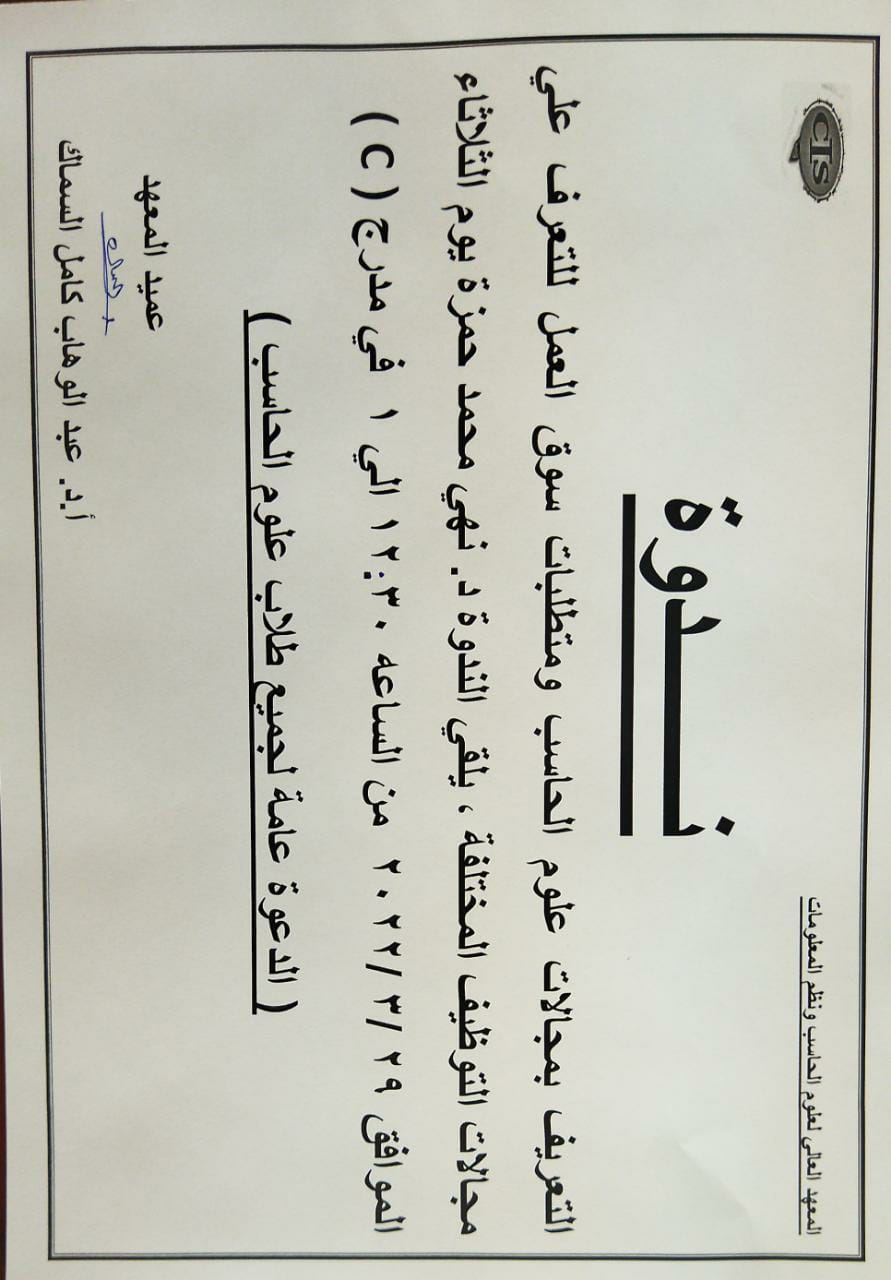 المعهد العالى لعلوم الحاسب ونظم المعلومات
CIS
نــدوة
التعريف بمجالات علوم الحاسب ومتطلبات سوق العمل للتعرف علي
مجالات التوظيف المختلفة ، يلقي الندوة د. نهي محمد حمزة يوم الثلاثاء
الموافق ٢٩ /٣ /٢٠٢٢ من الساعه ١٢:٣٠ الي ١ في مدرج ( C )
( الدعوة عامة لجميع طلاب علوم الحاسب )
عميد المعهد
أ.د. عبد الوهاب كامل السماك